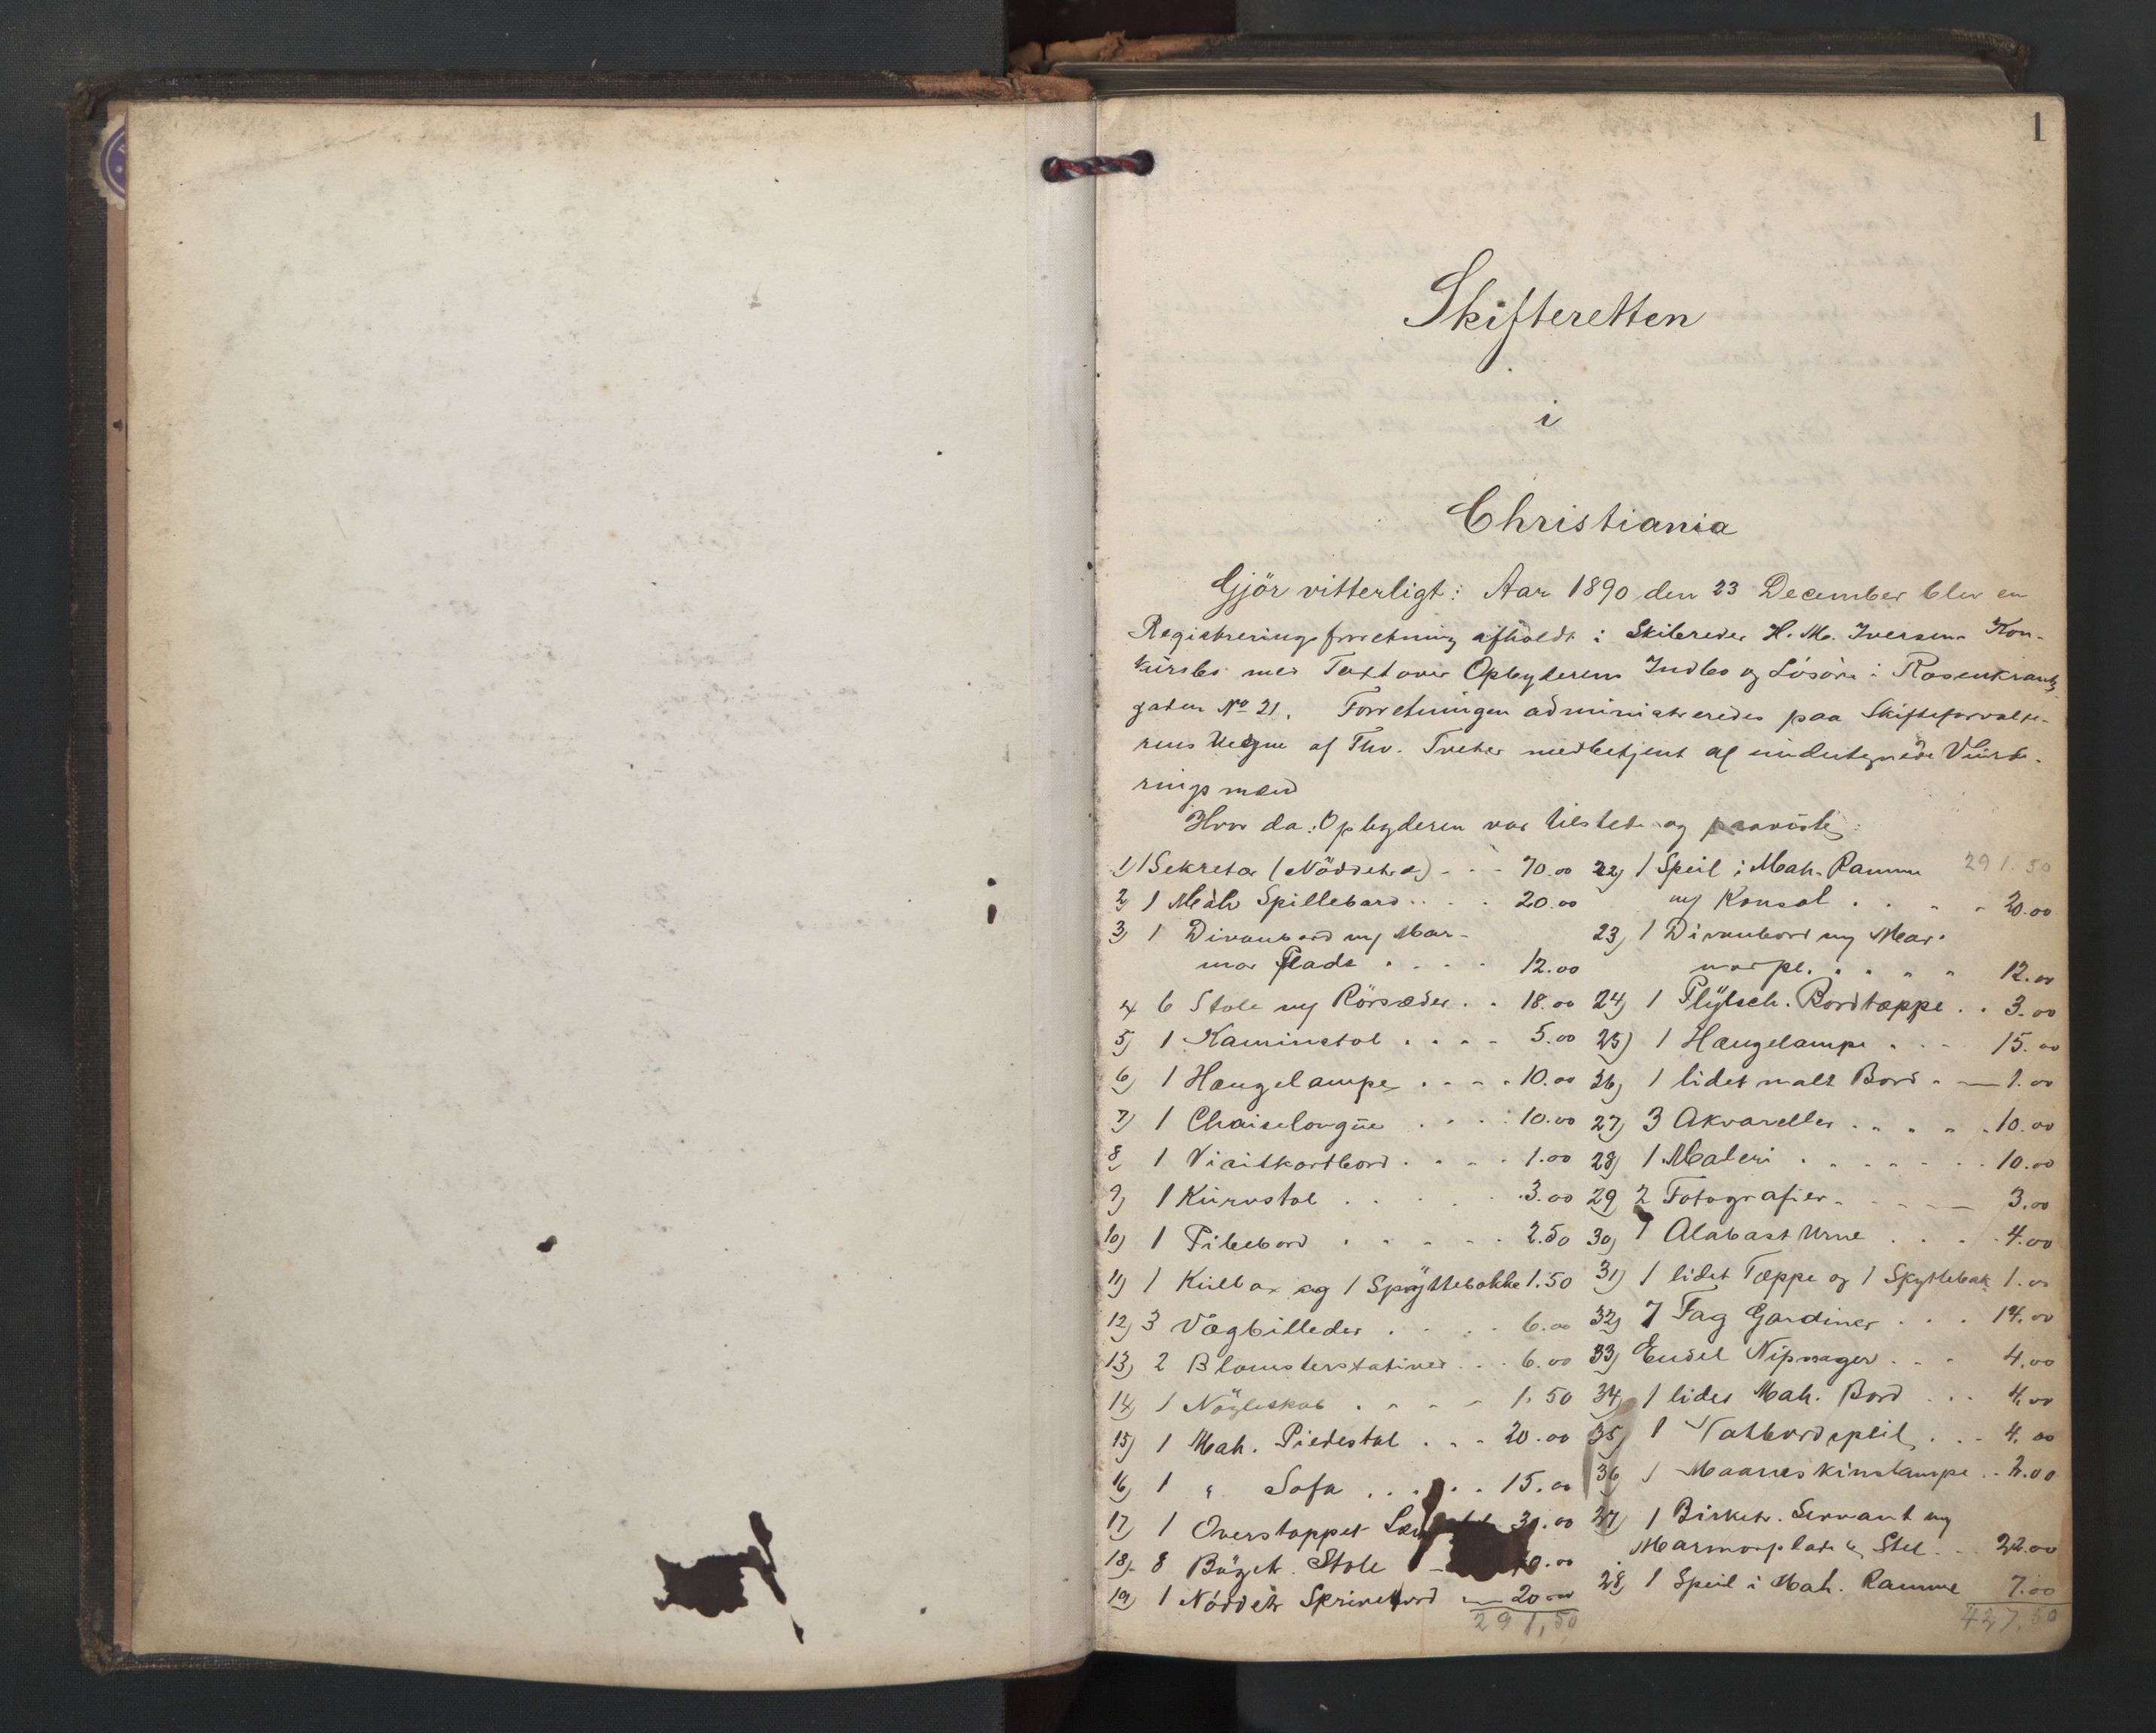 1
Skifteretten
i
Christiania
Gjör vitterligt: Aar 1890 den 23 December blev en
Registreringsforretning afholdt i Skibsreder H. M. Iversens Kon-
kursbo med Taxt over Opbyderens Indbo og Lösöre i Rosenkrantz-
gaden No 21. Forretningen administreredes paa Skifteforvalte-
rens Vegne af Thv. Treter medbetjent af undertegnede Vurde-
ringsmænd
Hvor da: Opbyderen var tilstede og paaviste:
1) 1 Sekretær (Nöddetræ) - - - 70.00
2) 1 Mah Spillebord . . . . 20.00
3) 1 Divanbord m/ Mar-
mor Plade . . . . 12.00
4 6 Stole m/ Rörsæder . . 18.00
5) 1 Kaminstol . . . . 5.00
6) 1 Hængelampe . . . . 10.00
7) 1 Chaiselongue . . . . 10.00
8) 1 Visitkortbord . . . . 1.00
9) 1 Kurvstol . . . . 3.00
10) 1 Pibebord . . . . 2.50
11) 1 Kulbox og 1 Spyttebakke 1.50
12) 3 Vægbilleder . . . . 6.00
13) 2 Blomsterstativer . . . 6.00
14) 1 Nögleskab . . . . 1.50
15) 1 Mah. Piedestal . . . 20.00
16) 1 " Sofa . . . . . 15.00
17) 1 Overstoppet 30.00
18) 8 Bögetr. Stole
19) 1 Nöddetr Skrivebord — 20.00
291,50
22) 1 Speil i Mah. Ramme 291.50
m/ Konsol . . . . 20.00
23) 1 Divanbord m/ Mar-
morpl. . . . . 12.00
24) 1 Plüsch. Bordtæppe . . 3.00
25) 1 Hængelampe . . . 15.00
26) 1 lidet malt Bord . — 1.00
27) 3 Akvareller . . . . . 10.00
28) 1 Maleri . . . . . . 10.00
29 2 Fotografier . . . — 3.00
30) 1 Alabast Urne . . . . 4.00
31) 1 lidet Tæppe og 1 Spyttebak 1.00
32) 7 Fag Gardiner . . . 14.00
33) Endel Nipssager . . . 4.00
34) 1 lidet Mah. Bord . . . 4.00
35) 1 Natbordspeil . . . 4.00
36 1 Maaneskinslampe . . 2.00
37) 1 Birketr. Servant m/
Marmorplade & Stel . . 22.00
28) 1 Speil i Mah. Ramme 7.00
427,50